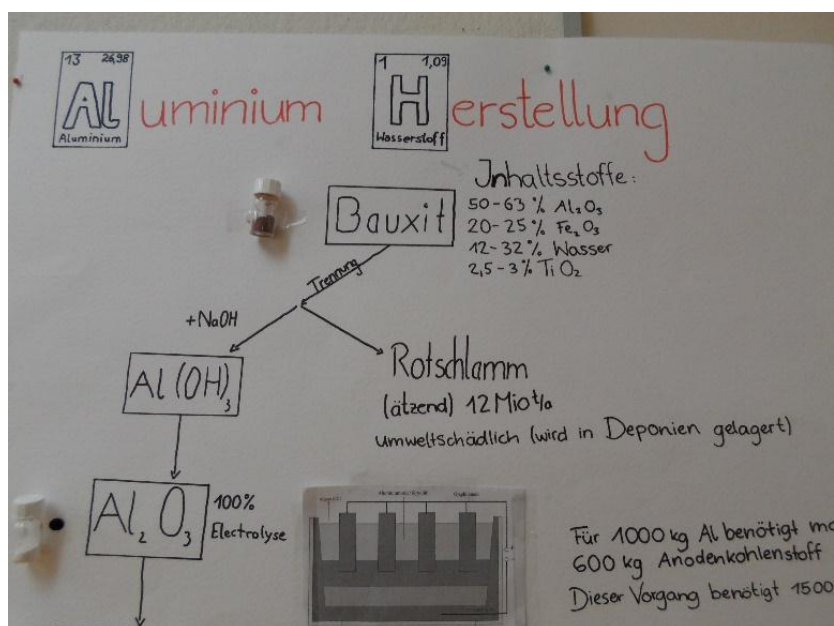 13 26,98
Al
Aluminium
uminium
1 1,09
H
Wasserstoff
erstellung
Bauxit
Inhaltsstoffe:
50-63% Al₂O₃
20-25% Fe₂O₃
12-32% Wasser
2,5-3% TiO₂
Trennung
+NaOH
Al(OH)₃
Rotschlamm
(ätzend) 12 Mio t/a
umweltschädlich (wird in Deponien gelagert)
Al₂O₃
100%
Electrolyse
Für 1000 kg Al benötigt
600 kg Anodenkohlenstoff
Dieser Vorgang benötigt 1500